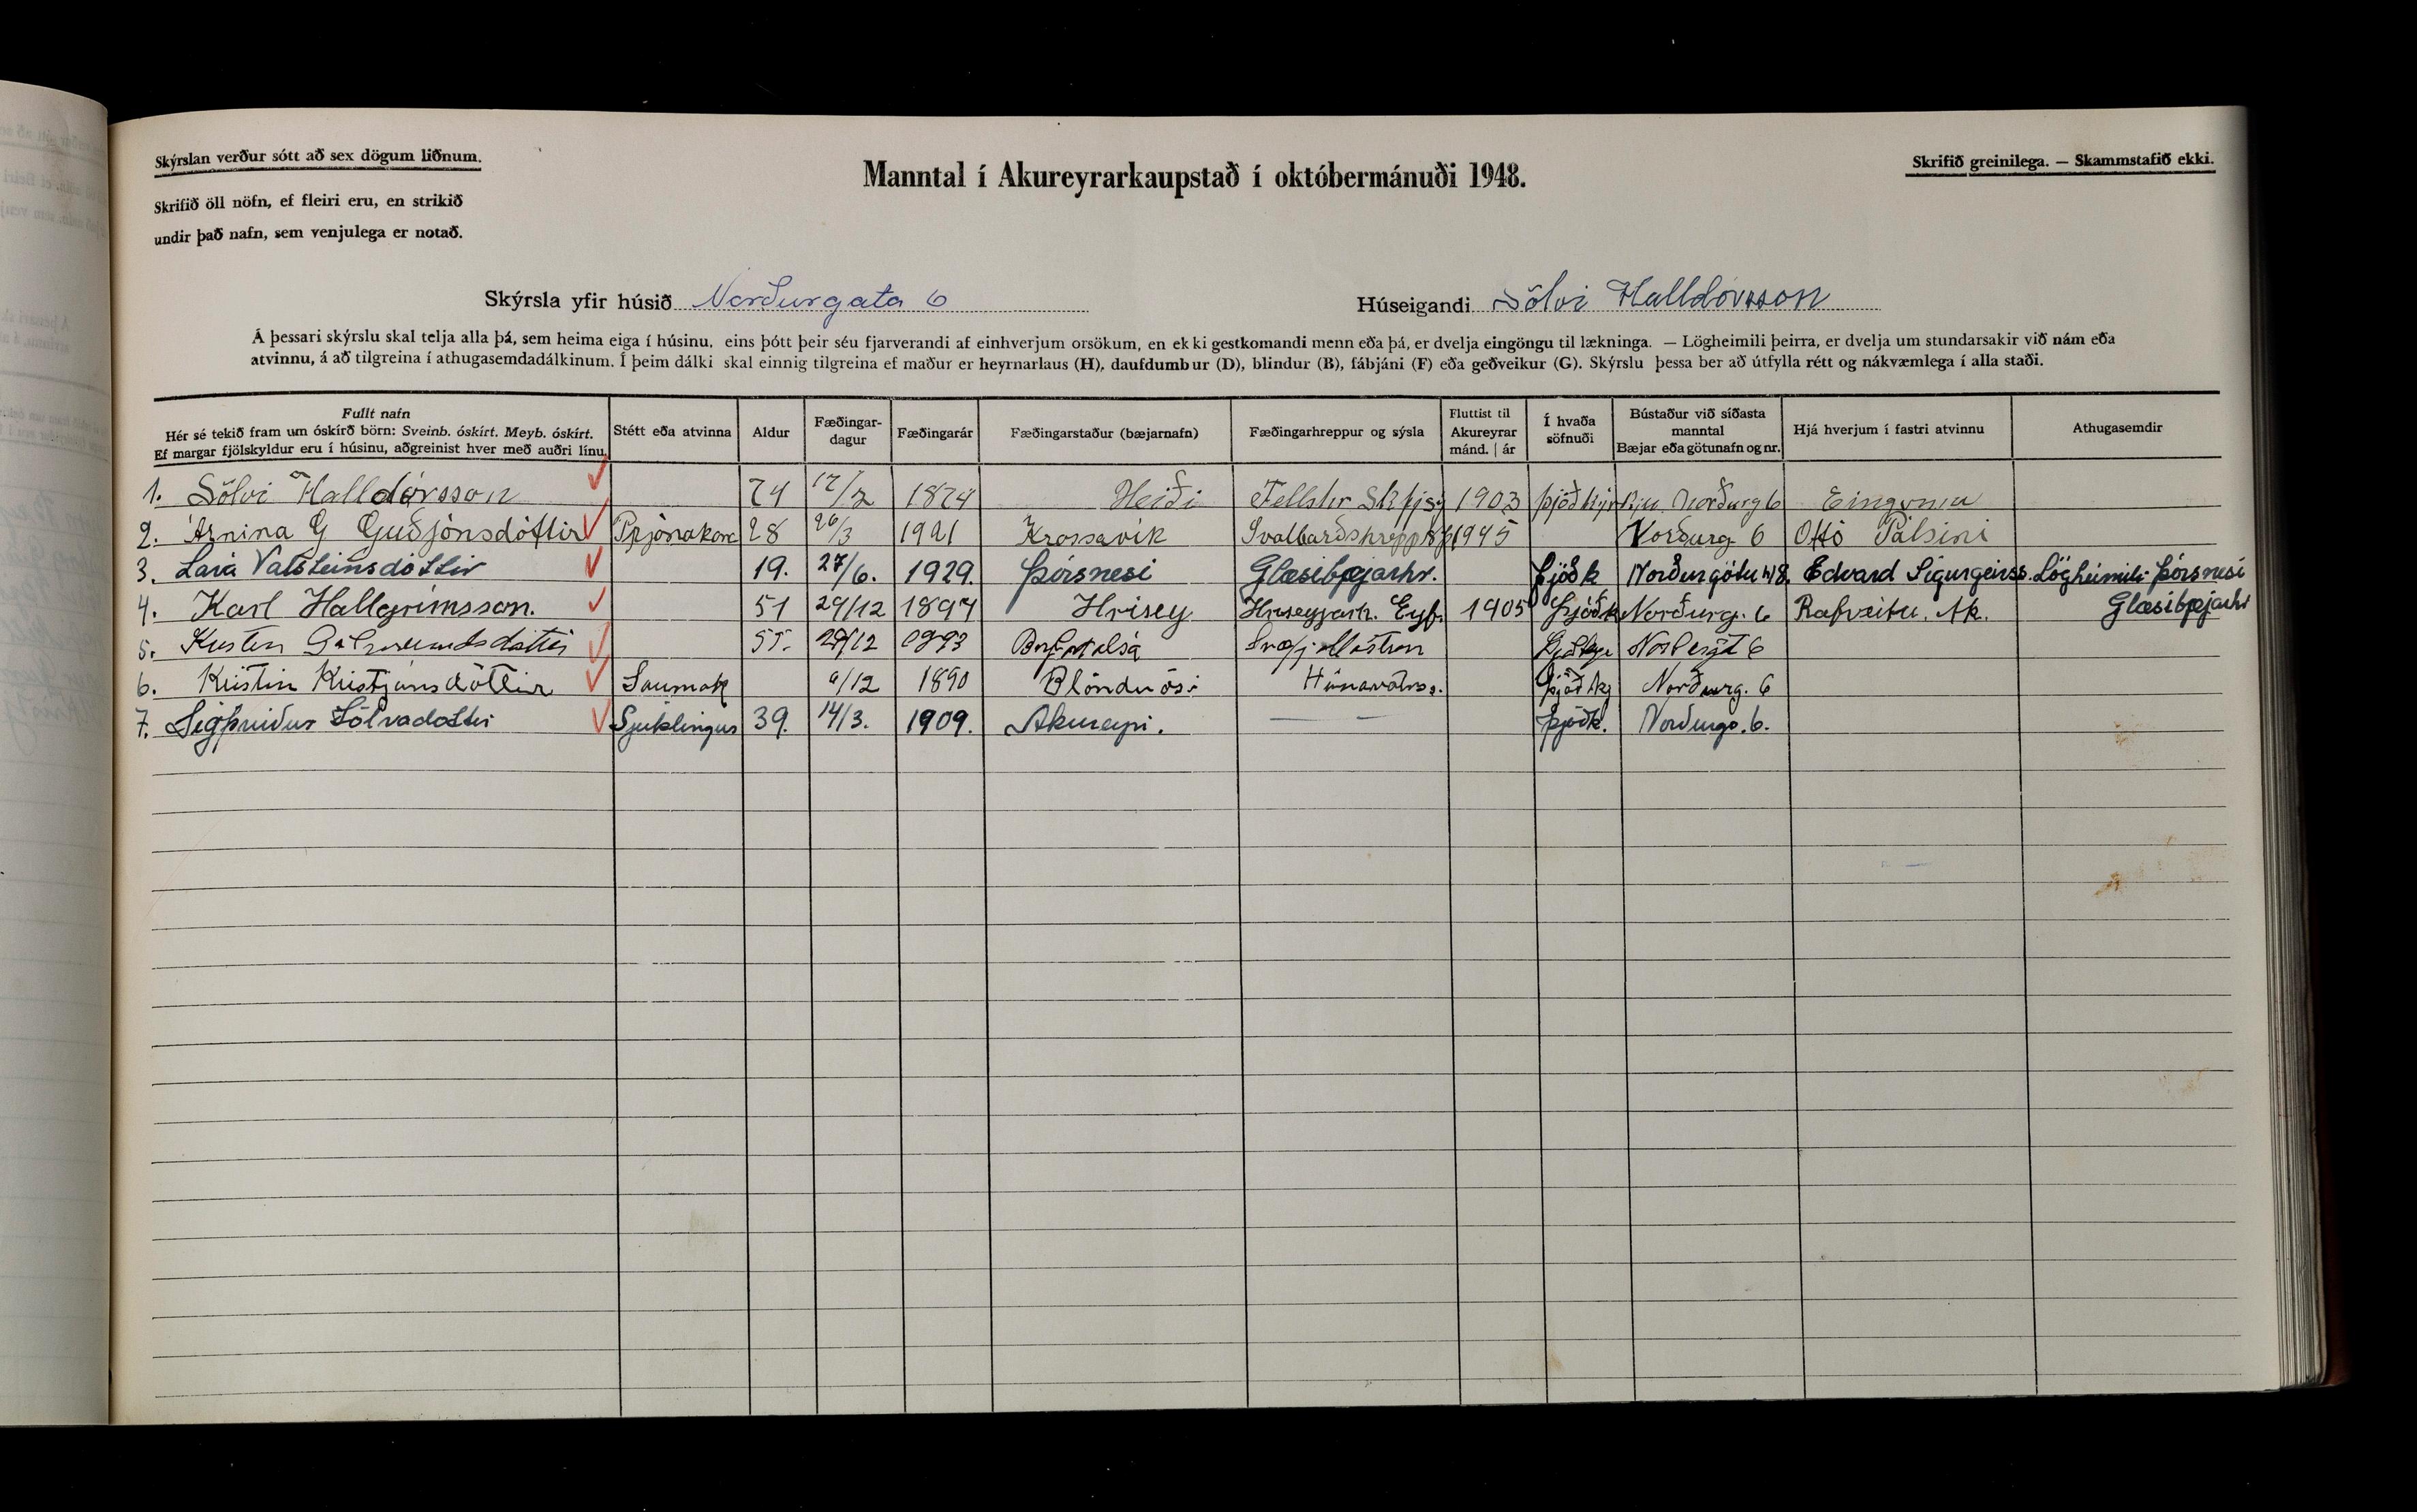 Skýrslan verður sótt að sex dögum liðnum.
Skrifið öll nöfn, ef fleiri eru, en strikið
undir það nafn, sem venjulega er notað.
Manntal í Akureyrarkaupstað í októbermánuði 1948.
Skrifið greinilega. — Skammstafið ekki.
Skýrsla yfir húsið Norðurgata 6
Húseigandi Sölvi Halldórsson
Á þessari skýrslu skal telja alla þá, sem heima eiga í húsinu, eins þótt þeir séu fjarverandi af einhverjum orsökum, en ekki gestkomandi menn eða þá, er dvelja eingöngu til lækninga. — Lögheimili þeirra, er dvelja um stundarsakir við nám eða
atvinnu, á að tilgreina í athugasemdadálkinum. Í þeim dálki skal einnig tilgreina ef maður er heyrnarlaus (H), daufdumbur (D), blindur (B), fábjáni (F) eða geðveikur (G). Skýrslu þessa ber að útfylla rétt og nákvæmlega í alla staði.
Fullt nafn
Hér sé tekið fram um óskírð börn: Sveinb. óskírt. Meyb. óskírt.
Ef margar fjölskyldur eru í húsinu, aðgreinist hver með auðri línu.
Stétt eða atvinna
Aldur
Fæðingar-
dagur
Fæðingarár
Fæðingarstaður (bæjarnafn)
Fæðingarhreppur og sýsla
Fluttist til
Akureyrar
mánd. | ár
Í hvaða
söfnuði
Bústaður við síðasta
manntal
Bæjar eða götunafn og nr.
Hjá hverjum í fastri atvinnu
Athugasemdir
1. Sölvi Halldórsson 74 17/2 1874 Heiði 1903 Norðurg 6
2. Arnina G Guðjónsdóttir Prjónakona 28 26/3 1921 Krossavík 1945 Norðurg 6 Ottó Pálsini
3. Lára Valsteinsdóttir 19. 27/6. 1929. Þórsnesi Glæsibæjarhr. Þjóðk Norðurgötu 48. Edvard Sigurgeirss. Lögheimili Þórsnesi
4. Karl Hallgrímsson. 51 29/12 1897 Hrísey Hríseyjarh. Eyf. 1905 Þjóðk Norðurg. 6 Rafveitu. Ak. Glæsibæjarhr
5. 55. 29/12
6. Kristín Kristjánsdóttir Saumak 6/12 1890 Blönduósi Húnavatnss. Norðurg. 6
7. Sigþrúður Sölvadóttir Sjúklingur 39. 14/3. 1909. Akureyri. — — Þjóðk. Norðurg. 6.